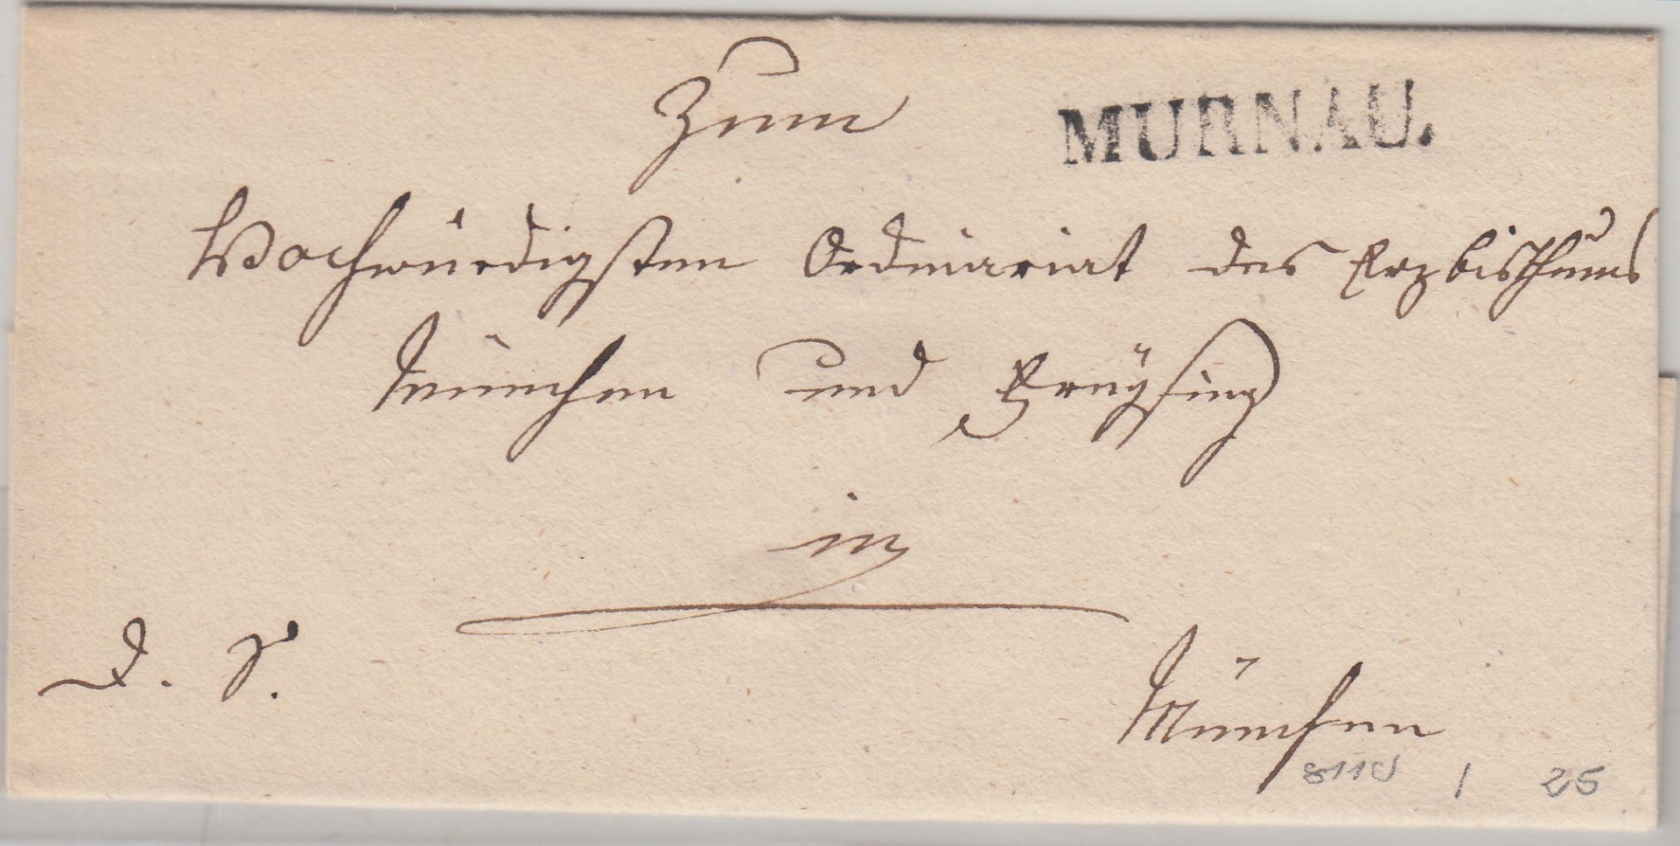 Zum
MURNAU.
Hochwürdigsten Ordinariat des Erzbisthums
München und Freÿsing
in
D. S.
München
8110 / 25